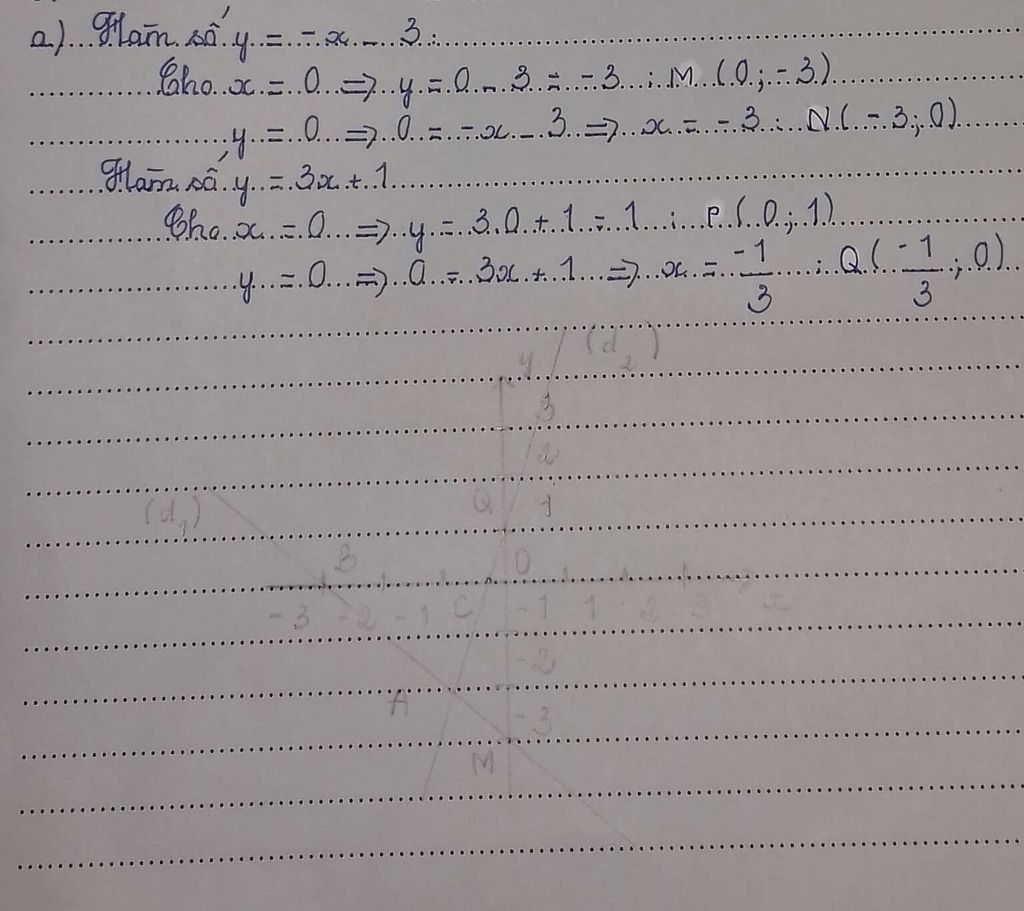 a) Hàm số y = -x - 3 :
Cho x = 0 => y = 0 - 3 = -3 ; M (0 ; -3)
y = 0 => 0 = -x - 3 => x = -3 ; N ( -3 ; 0)
Hàm số y = 3x + 1
Cho x = 0 => y = 3.0 + 1 = 1 ; P ( 0 ; 1)
y = 0 => 0 = 3x + 1 => x = -1/3 ; Q ( -1/3 ; 0)
y (d2)
3
2
(d1) Q 1
B O
-3 -2 -1 C -1 1 2 3 x
-2
A -3
M